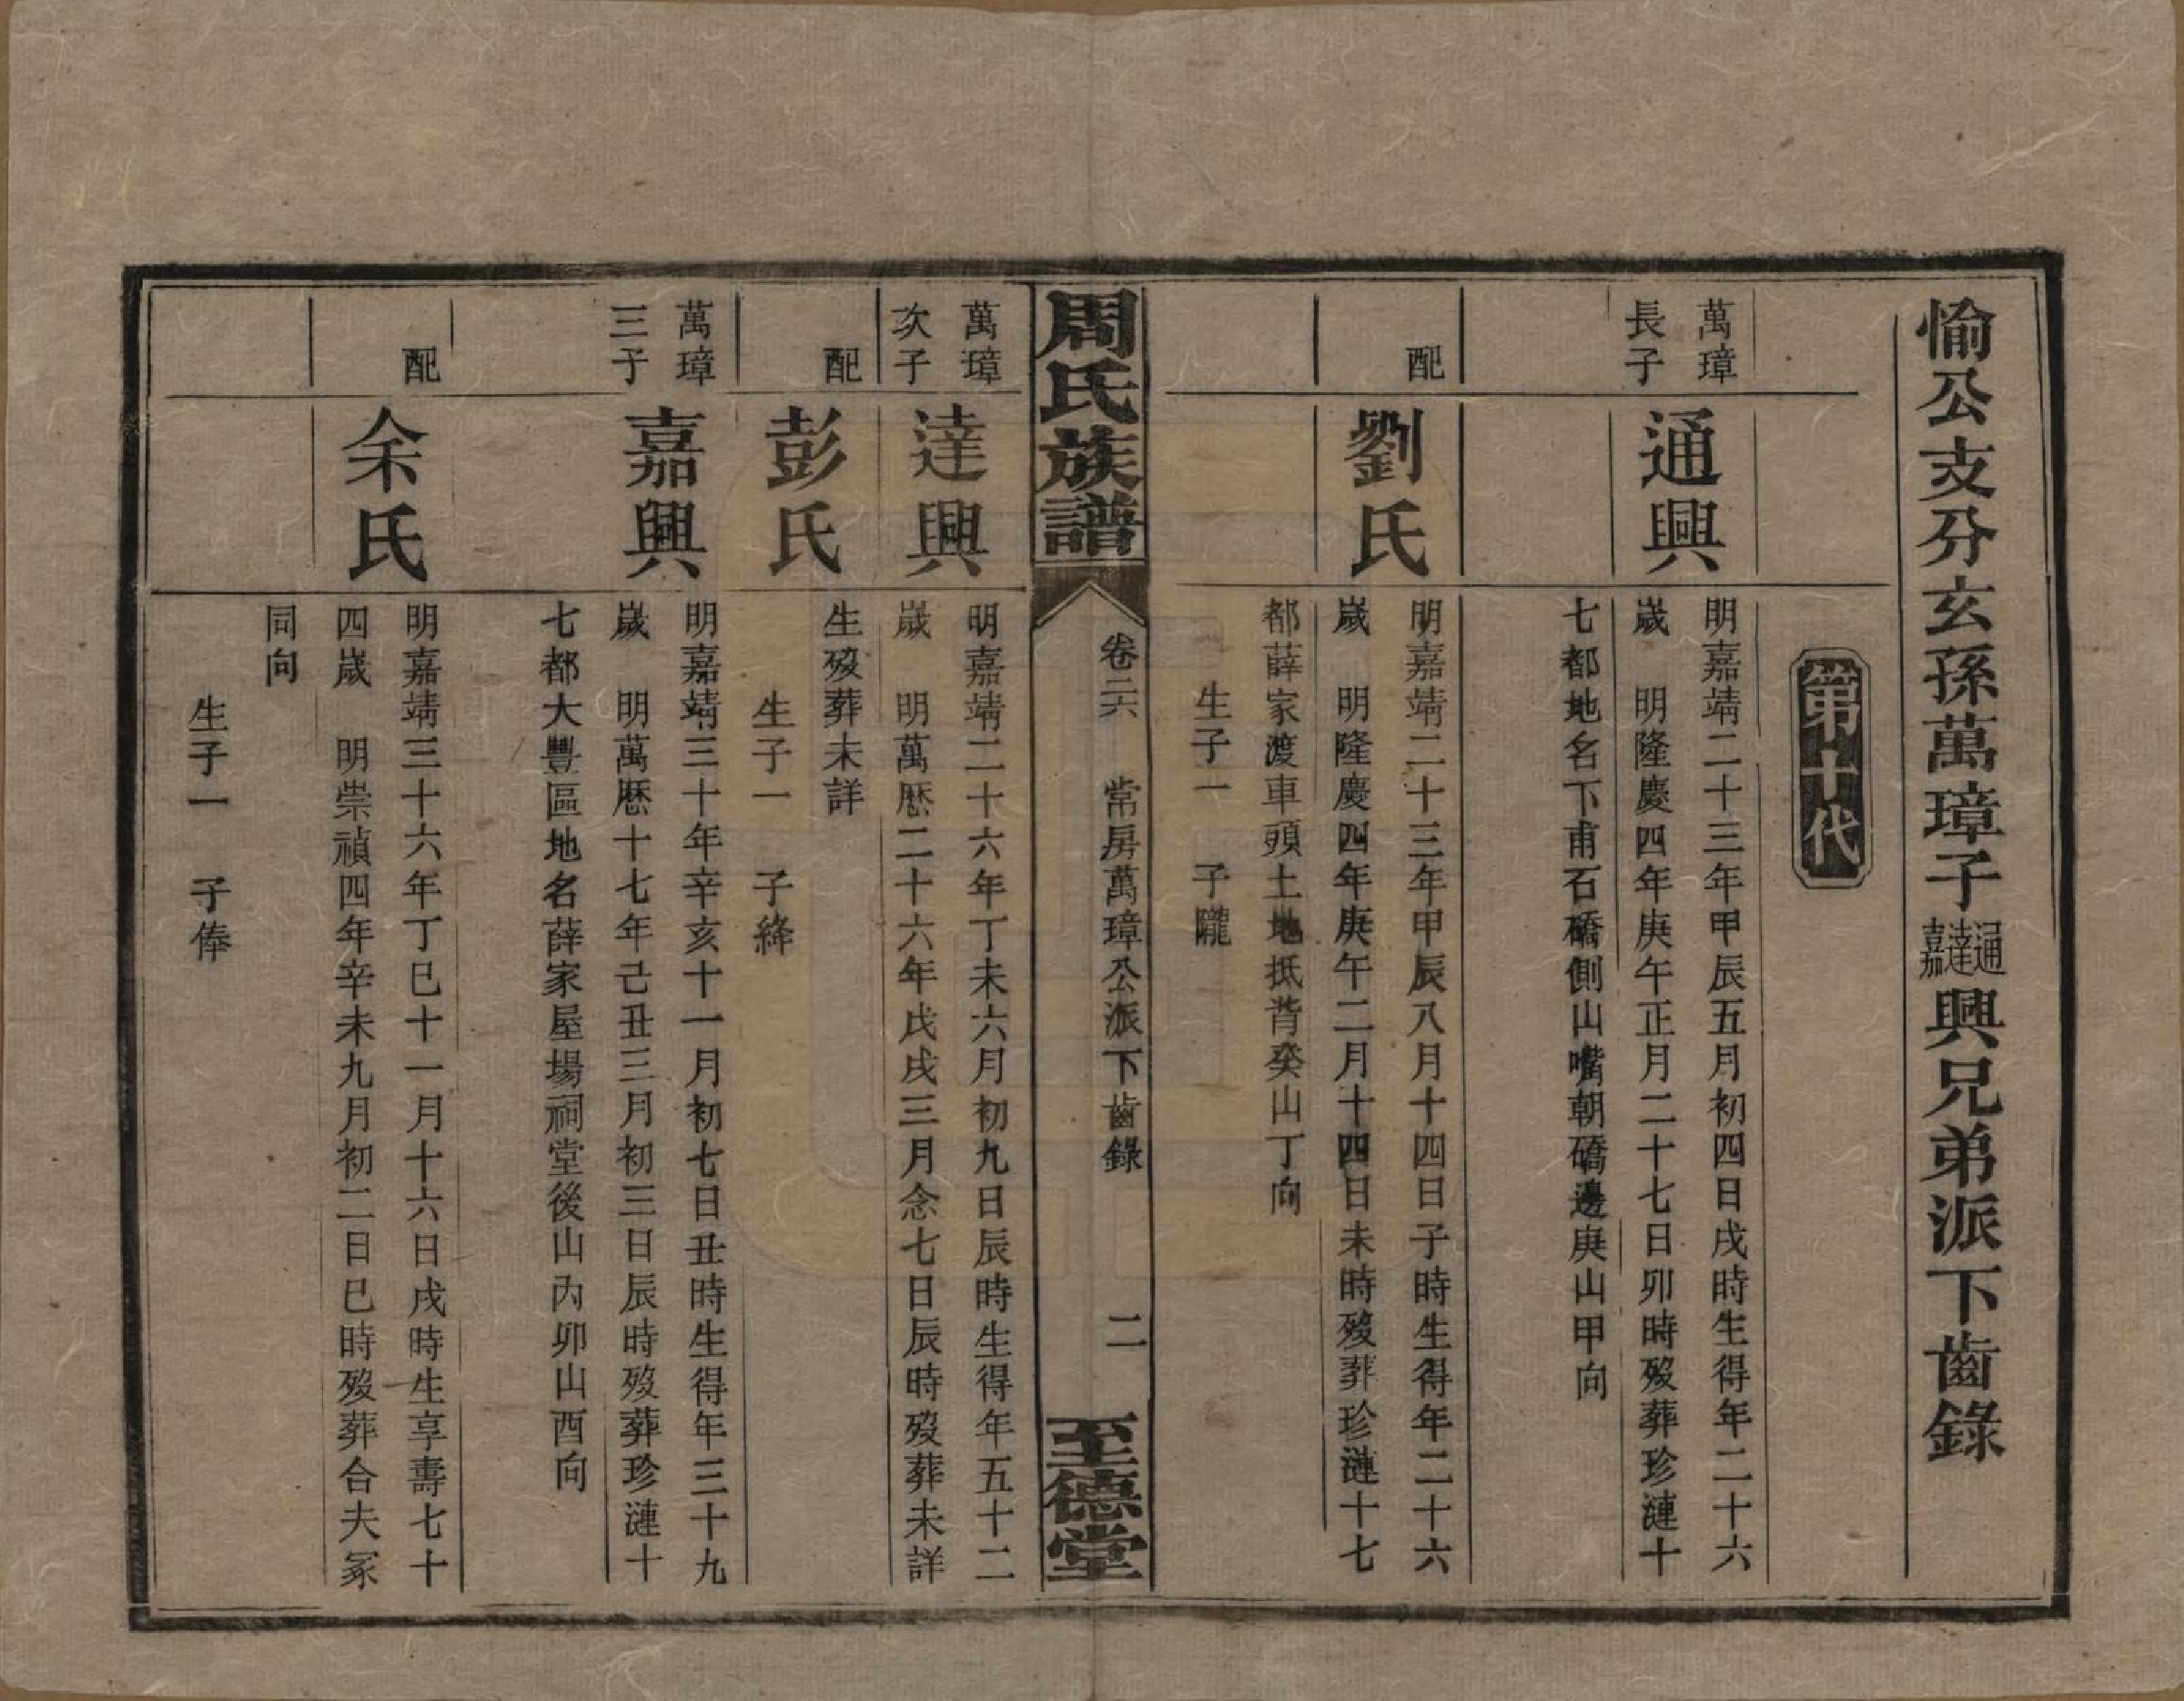 愉公支分玄孫萬璋子通達嘉興兄弟派下齒錄
第十代
萬璋
長子
通興
明嘉靖二十三年甲辰五月初四日戌時生得年二十六
歲　明隆慶四年庚午正月二十七日卯時歿葬珍漣十
七都地名下甫石磽側山嘴朝磽邊庚山甲向
配
劉氏
明嘉靖二十三年甲辰八月十四日子時生得年二十六
歲　明隆慶四年庚午二月十四日未時歿葬珍漣十七
都薛家渡車頭土地抵背癸山丁向
生子一　子隴
周氏族譜
卷二六　常房萬璋公派下齒錄　二
至德堂
萬璋
次子
達興
明嘉靖二十六年丁未六月初九日辰時生得年五十二
歲　明萬曆二十六年戊戌三月念七日辰時歿葬未詳
配
彭氏
生歿葬未詳
生子一　子絳
萬璋
三子
嘉興
明嘉靖三十年辛亥十一月初七日丑時生得年三十九
歲　明萬曆十七年己丑三月初三日辰時歿葬珍漣十
七都大豐區地名薛家屋場祠堂後山內卯山酉向
配
余氏
明嘉靖三十六年丁巳十一月十六日戌時生享壽七十
四歲　明崇禎四年辛未九月初二日巳時歿葬合夫冢
同向
生子一　子俸